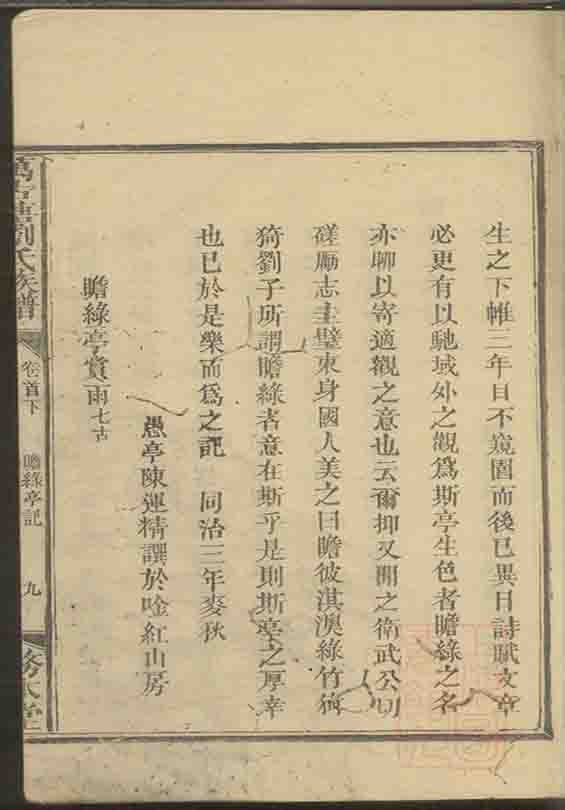 生之下帷三年目不窺園而後已異日詩賦文章
必更有以馳域外之觀爲斯亭生色者瞻綠之名
亦聊以寄適觀之意也云爾抑又聞之衛武公切
磋勵志圭璧束身國人美之曰瞻彼淇澳綠竹猗
猗劉子所謂瞻綠者意在斯乎是則斯亭之厚幸
也已於是樂而爲之記 同治三年麥秋
愚亭陳運精譔於唫紅山房
瞻綠亭賞雨七古
劉氏族譜
卷首下
瞻綠亭記
九